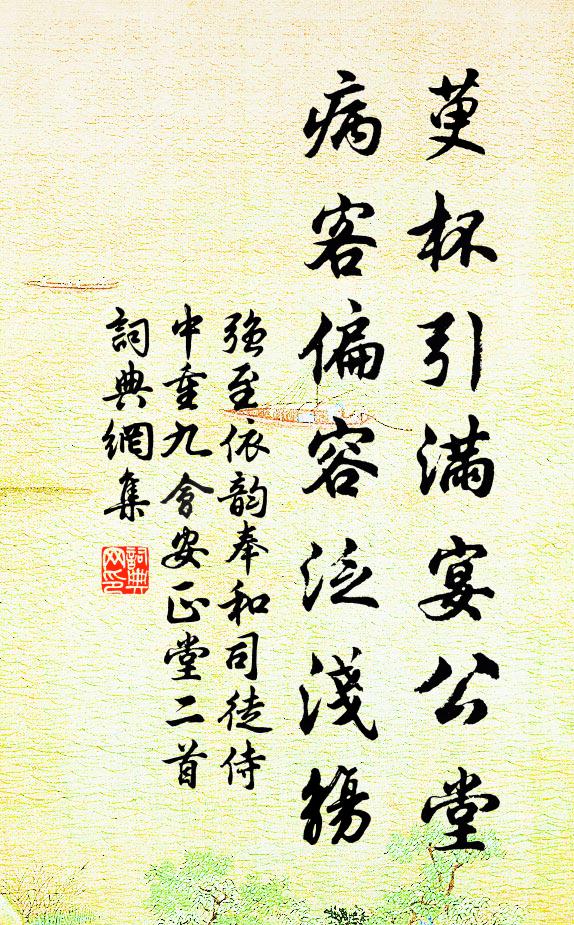 萸杯引滿宴公堂
病客偏容泛淺觴
強至依韵奉和司徒侍
中重九會安正堂二首
詞典網集
詞典网印